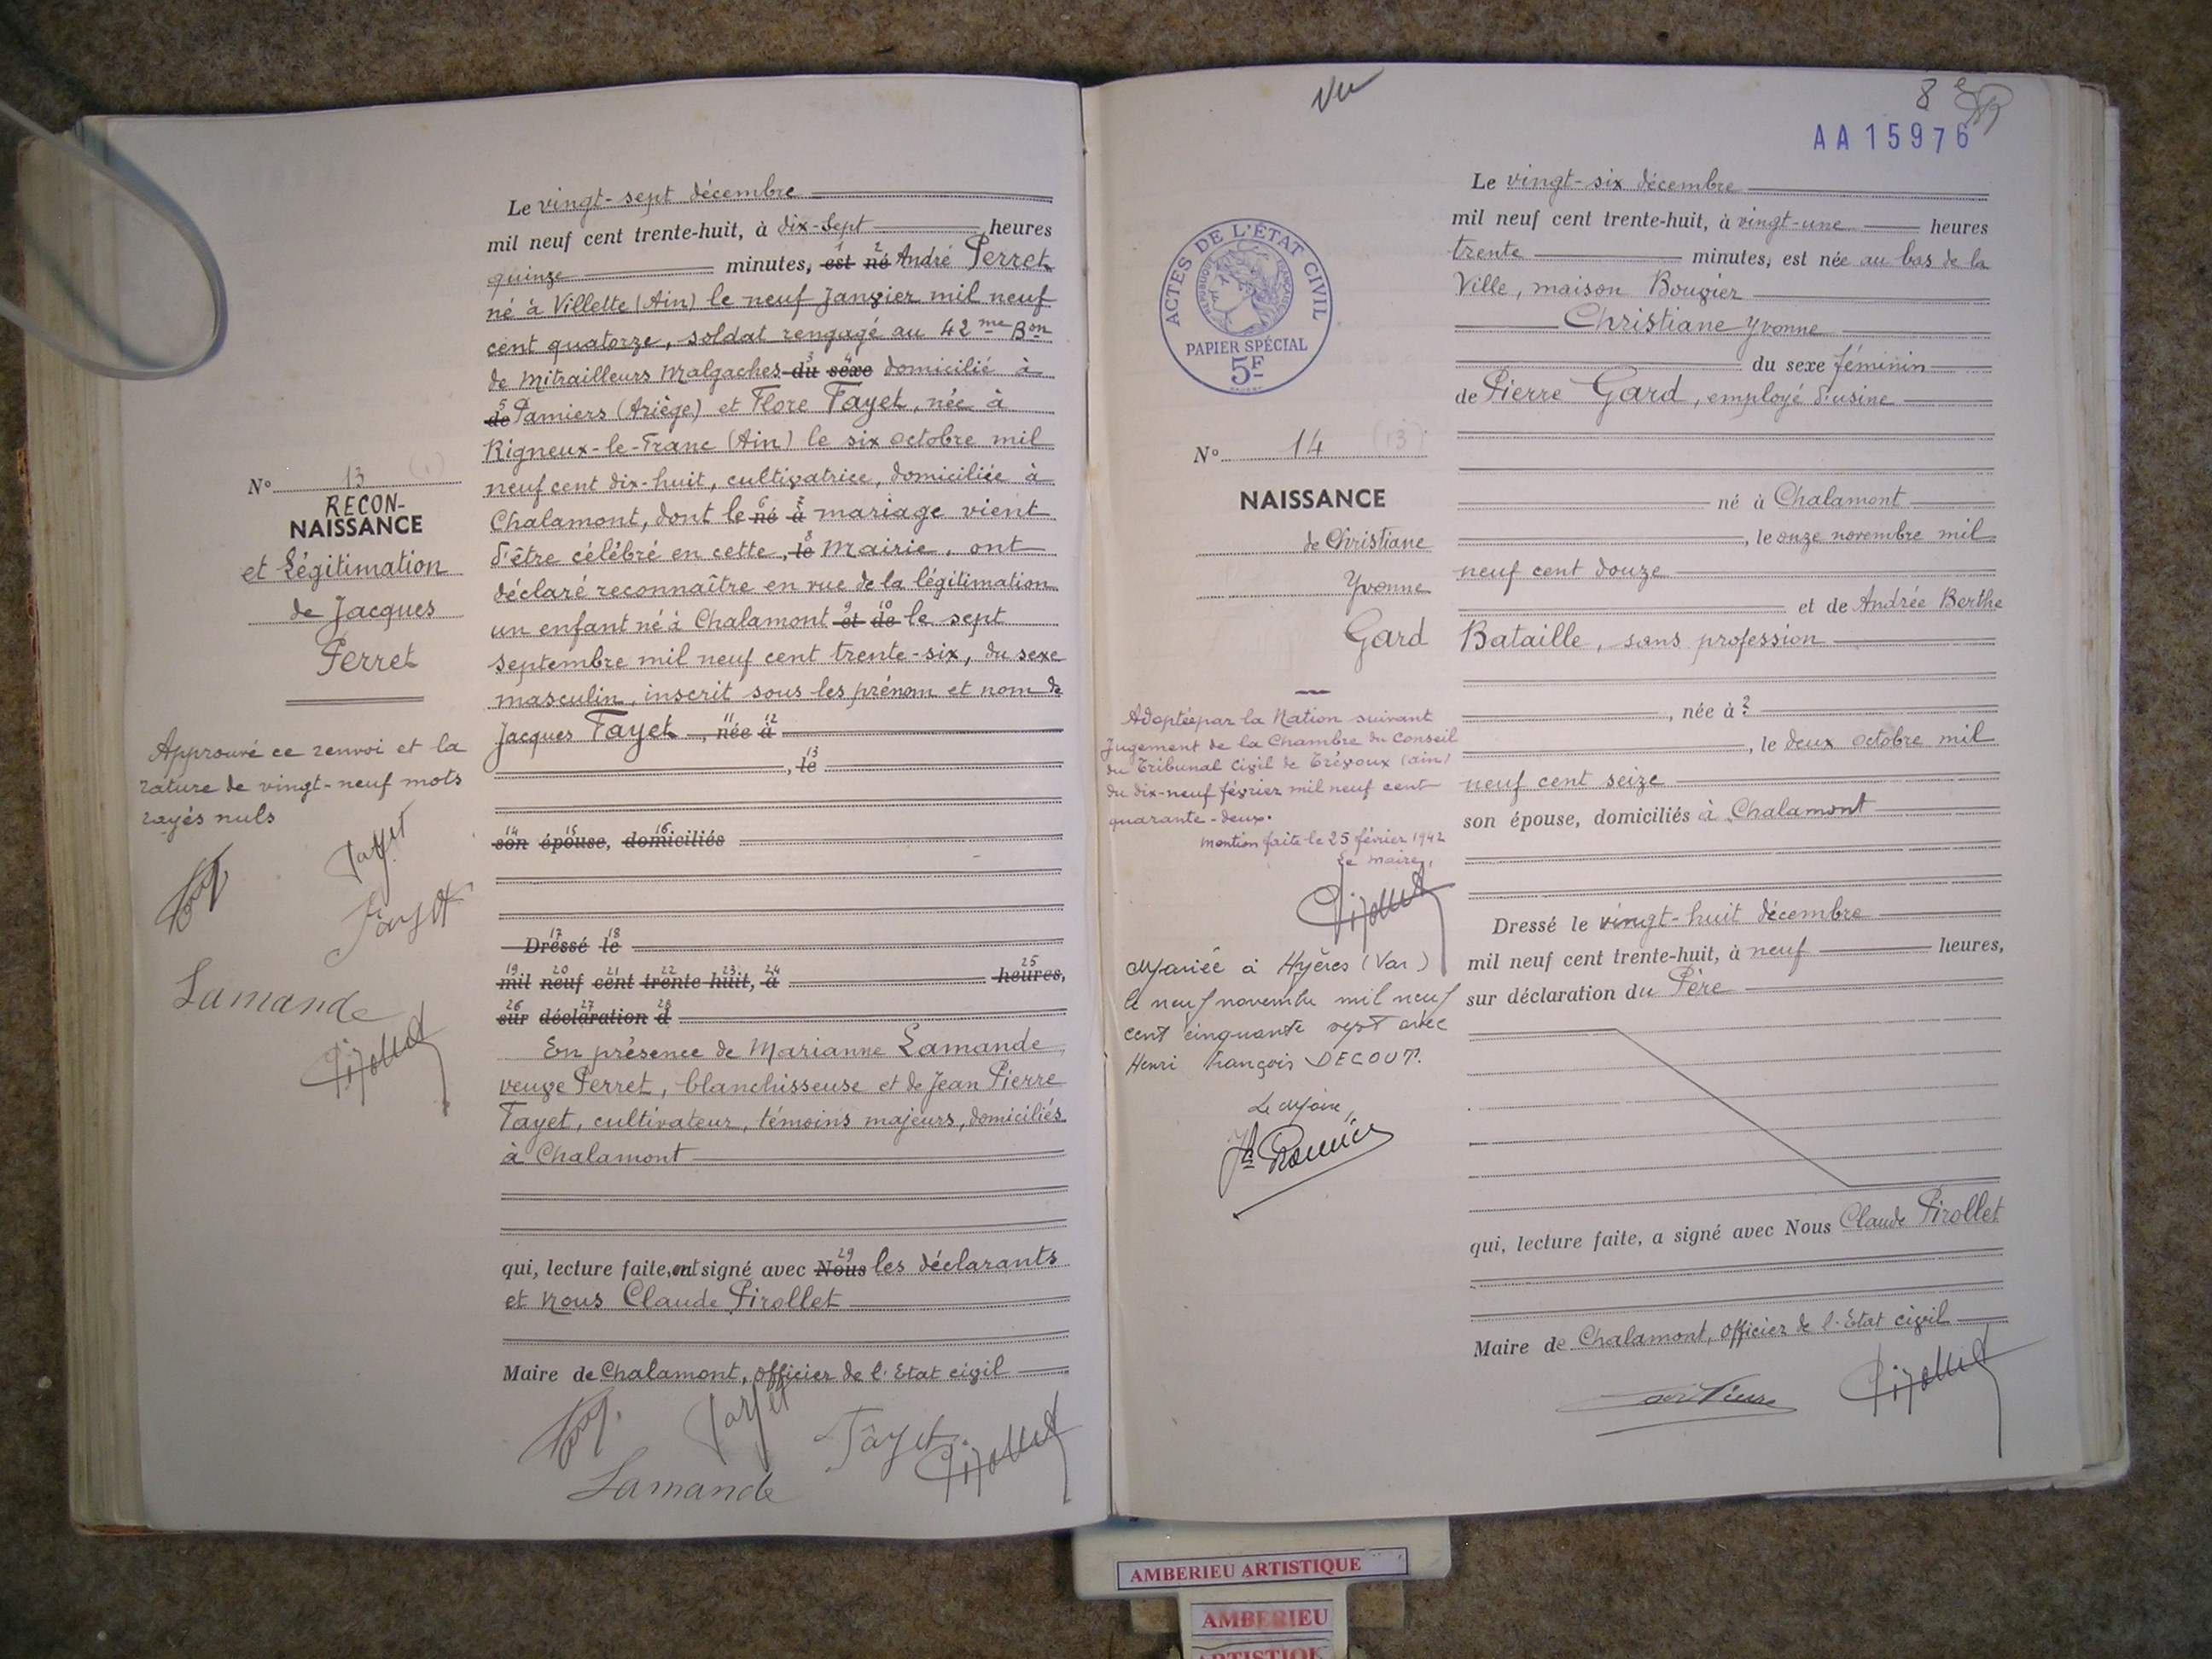 N° 13 (1)
RECON-
NAISSANCE
et Légitimation
de Jacques
Perret
Approuvé ce renvoi et la
rature de vingt-neuf mots
rayés nuls
Fayet
Fayet
Lamande
Pirollet
Le vingt-sept décembre
mil neuf cent trente-huit, à dix-sept heures
quinze minutes, est né André Perret
né à Villette (Ain) le neuf Janvier mil neuf
cent quatorze, soldat rengagé au 42me Bon
de Mitrailleurs Malgaches du sexe domicilié à
de Pamiers (Ariège) et Flore Fayet, née à
Rigneux-le-Franc (Ain) le six octobre mil
neuf cent dix-huit, cultivatrice, domiciliée à
Chalamont, dont le né à mariage vient
d'être célébré en cette, le Mairie, ont
déclaré reconnaître en vue de la légitimation
un enfant né à Chalamont et de le sept
septembre mil neuf cent trente-six, du sexe
masculin, inscrit sous les prénom et nom de
Jacques Fayet, née à
, le
son épouse, domiciliés
Dressé le
mil neuf cent trente-huit, à heures,
sur déclaration d
En présence de Marianne Lamande
veuve Perret, blanchisseuse et de Jean Pierre
Fayet, cultivateur, témoins majeurs, domiciliés
à Chalamont
qui, lecture faite, ont signé avec Nous les déclarants
et Nous Claude Pirollet
Maire de Chalamont, officier de l'Etat civil
Fayet
Fayet
Pirollet
Lamande
Vu
8e
AA15976
ACTES DE L'ÉTAT CIVIL
RÉPUBLIQUE FRANÇAISE
PAPIER SPÉCIAL
5F
N° 14 (13)
NAISSANCE
de Christiane
Yvonne
Gard
Adoptée par la Nation suivant
Jugement de la Chambre du Conseil
du Tribunal Civil de Trévoux (ain)
du dix-neuf février mil neuf cent
quarante-deux.
Mention faite le 25 février 1942
Le Maire,
Pirollet
Mariée à Hyères (Var)
le neuf novembre mil neuf
cent cinquante sept avec
Henri François DECOUT.
Le Maire,
Le vingt-six décembre
mil neuf cent trente-huit, à vingt-une heures
trente minutes, est née au bas de la
Ville, maison Bouvier
Christiane Yvonne
du sexe féminin
de Pierre Gard, employé d'usine
né à Chalamont
, le onze novembre mil
neuf cent douze
et de Andrée Berthe
Bataille, sans profession
, née à ?
, le deux octobre mil
neuf cent seize
son épouse, domiciliés à Chalamont
Dressé le vingt-huit décembre
mil neuf cent trente-huit, à neuf heures,
sur déclaration du Père
qui, lecture faite, a signé avec Nous Claude Pirollet
Maire de Chalamont, officier de l'Etat civil
Pirollet
AMBERIEU ARTISTIQUE
AMBERIEU
ARTISTIQUE